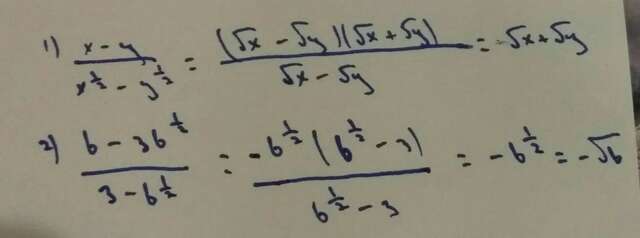 1) \frac{x - y}{x^{\frac{1}{2}} - y^{\frac{1}{2}}} = \frac{(\sqrt{x} - \sqrt{y})(\sqrt{x} + \sqrt{y})}{\sqrt{x} - \sqrt{y}} = \sqrt{x} + \sqrt{y}
2) \frac{b - 3b^{\frac{1}{2}}}{3 - b^{\frac{1}{2}}} = \frac{-b^{\frac{1}{2}}(b^{\frac{1}{2}} - 3)}{b^{\frac{1}{2}} - 3} = -b^{\frac{1}{2}} = -\sqrt{b}